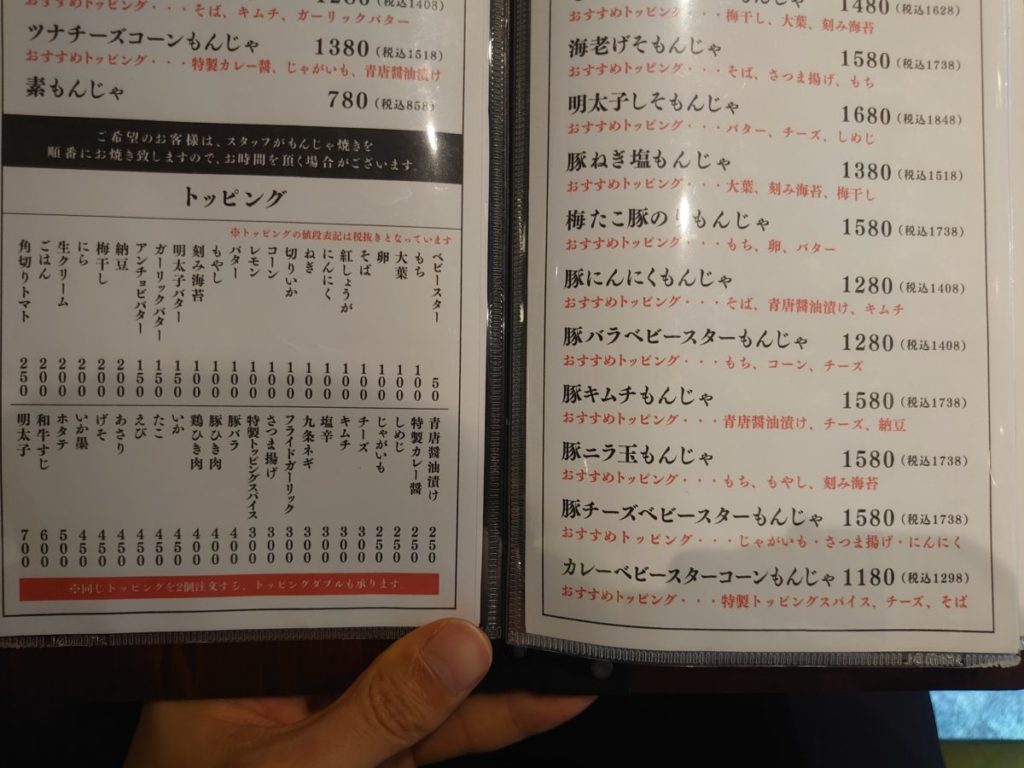 おすすめトッピング・・・そば、キムチ、ガーリックバター
(税込1408)
ツナチーズコーンもんじゃ 1380(税込1518)
おすすめトッピング・・・特製カレー醤、じゃがいも、青唐醤油漬け
素もんじゃ 780(税込858)
ご希望のお客様は、スタッフがもんじゃ焼きを
順番にお焼き致しますので、お時間を頂く場合がございます。
トッピング
※トッピングの値段表記は税抜きとなっています
ベビースター 50
もち 100
大葉 100
卵 100
そば 100
紅しょうが 100
にんにく 100
ねぎ 100
切りいか 100
コーン 100
レモン 100
バター 100
もやし 100
刻み海苔 100
明太子バター 150
ガーリックバター 150
アンチョビバター 150
納豆 200
梅干し 200
にら 200
生クリーム 200
ごはん 200
角切りトマト 250
青唐醤油漬け 250
特製カレー醤 250
しめじ 250
じゃがいも 250
チーズ 300
キムチ 300
塩辛 300
九条ネギ 300
フライドガーリック 300
さつま揚げ 300
特製トッピングスパイス 300
豚バラ 400
豚ひき肉 400
鶏ひき肉 400
いか 450
たこ 450
えび 450
あさり 450
げそ 450
いか墨 450
ホタテ 500
和牛すじ 600
明太子 700
※同じトッピングを2個注文する、トッピングダブルも承ります。
1480(税込1628)
おすすめトッピング・・・梅干し、大葉、刻み海苔
海老げそもんじゃ 1580(税込1738)
おすすめトッピング・・・そば、さつま揚げ、もち
明太子しそもんじゃ 1680(税込1848)
おすすめトッピング・・・バター、チーズ、しめじ
豚ねぎ塩もんじゃ 1380(税込1518)
おすすめトッピング・・・大葉、刻み海苔、梅干し
梅たこ豚のりもんじゃ 1580(税込1738)
おすすめトッピング・・・もち、卵、バター
豚にんにくもんじゃ 1280(税込1408)
おすすめトッピング・・・そば、青唐醤油漬け、キムチ
豚バラベビースターもんじゃ 1280(税込1408)
おすすめトッピング・・・もち、コーン、チーズ
豚キムチもんじゃ 1580(税込1738)
おすすめトッピング・・・青唐醤油漬け、チーズ、納豆
豚ニラ玉もんじゃ 1580(税込1738)
おすすめトッピング・・・もち、もやし、刻み海苔
豚チーズベビースターもんじゃ 1580(税込1738)
おすすめトッピング・・・じゃがいも・さつま揚げ・にんにく
カレーベビースターコーンもんじゃ 1180(税込1298)
おすすめトッピング・・・特製トッピングスパイス、チーズ、そば